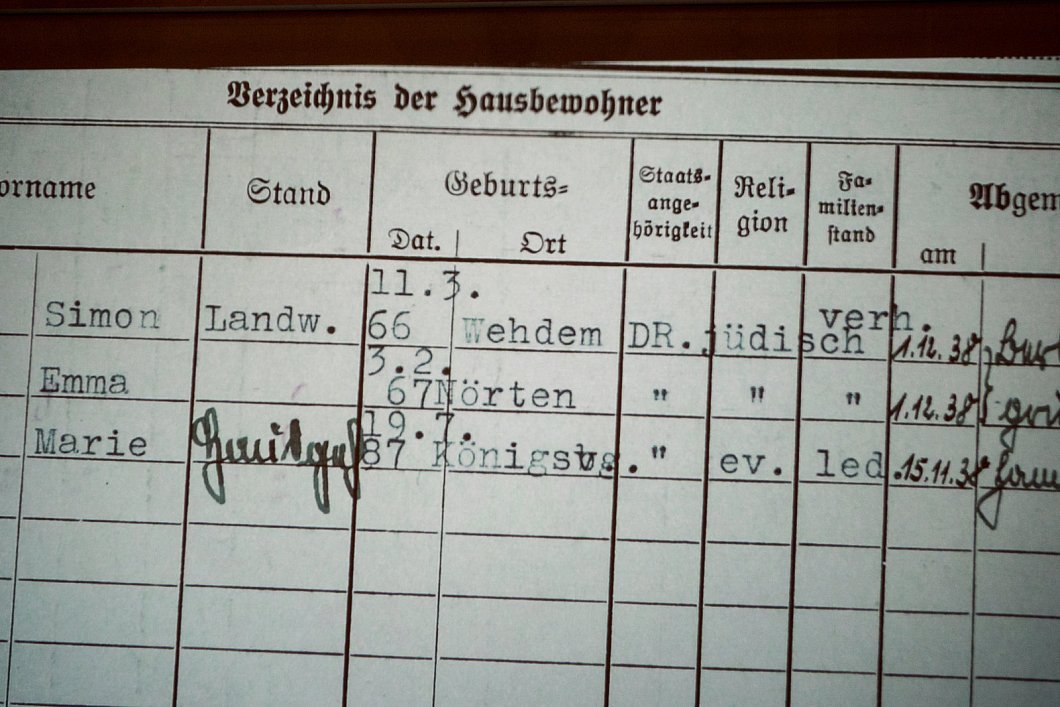 Verzeichnis der Hausbewohner
orname Stand Geburts= Staats= ange= hörigkeit Reli= gion Fa= milien= stand Abgem
Dat. Ort am
11.3.
Simon Landw. 66 Wehdem DR. jüdisch verh. 1.12.38
3.2.
Emma 67 Nörten " " " 1.12.38
19.7.
Marie 87 Königsbg. " ev. led. 15.11.38